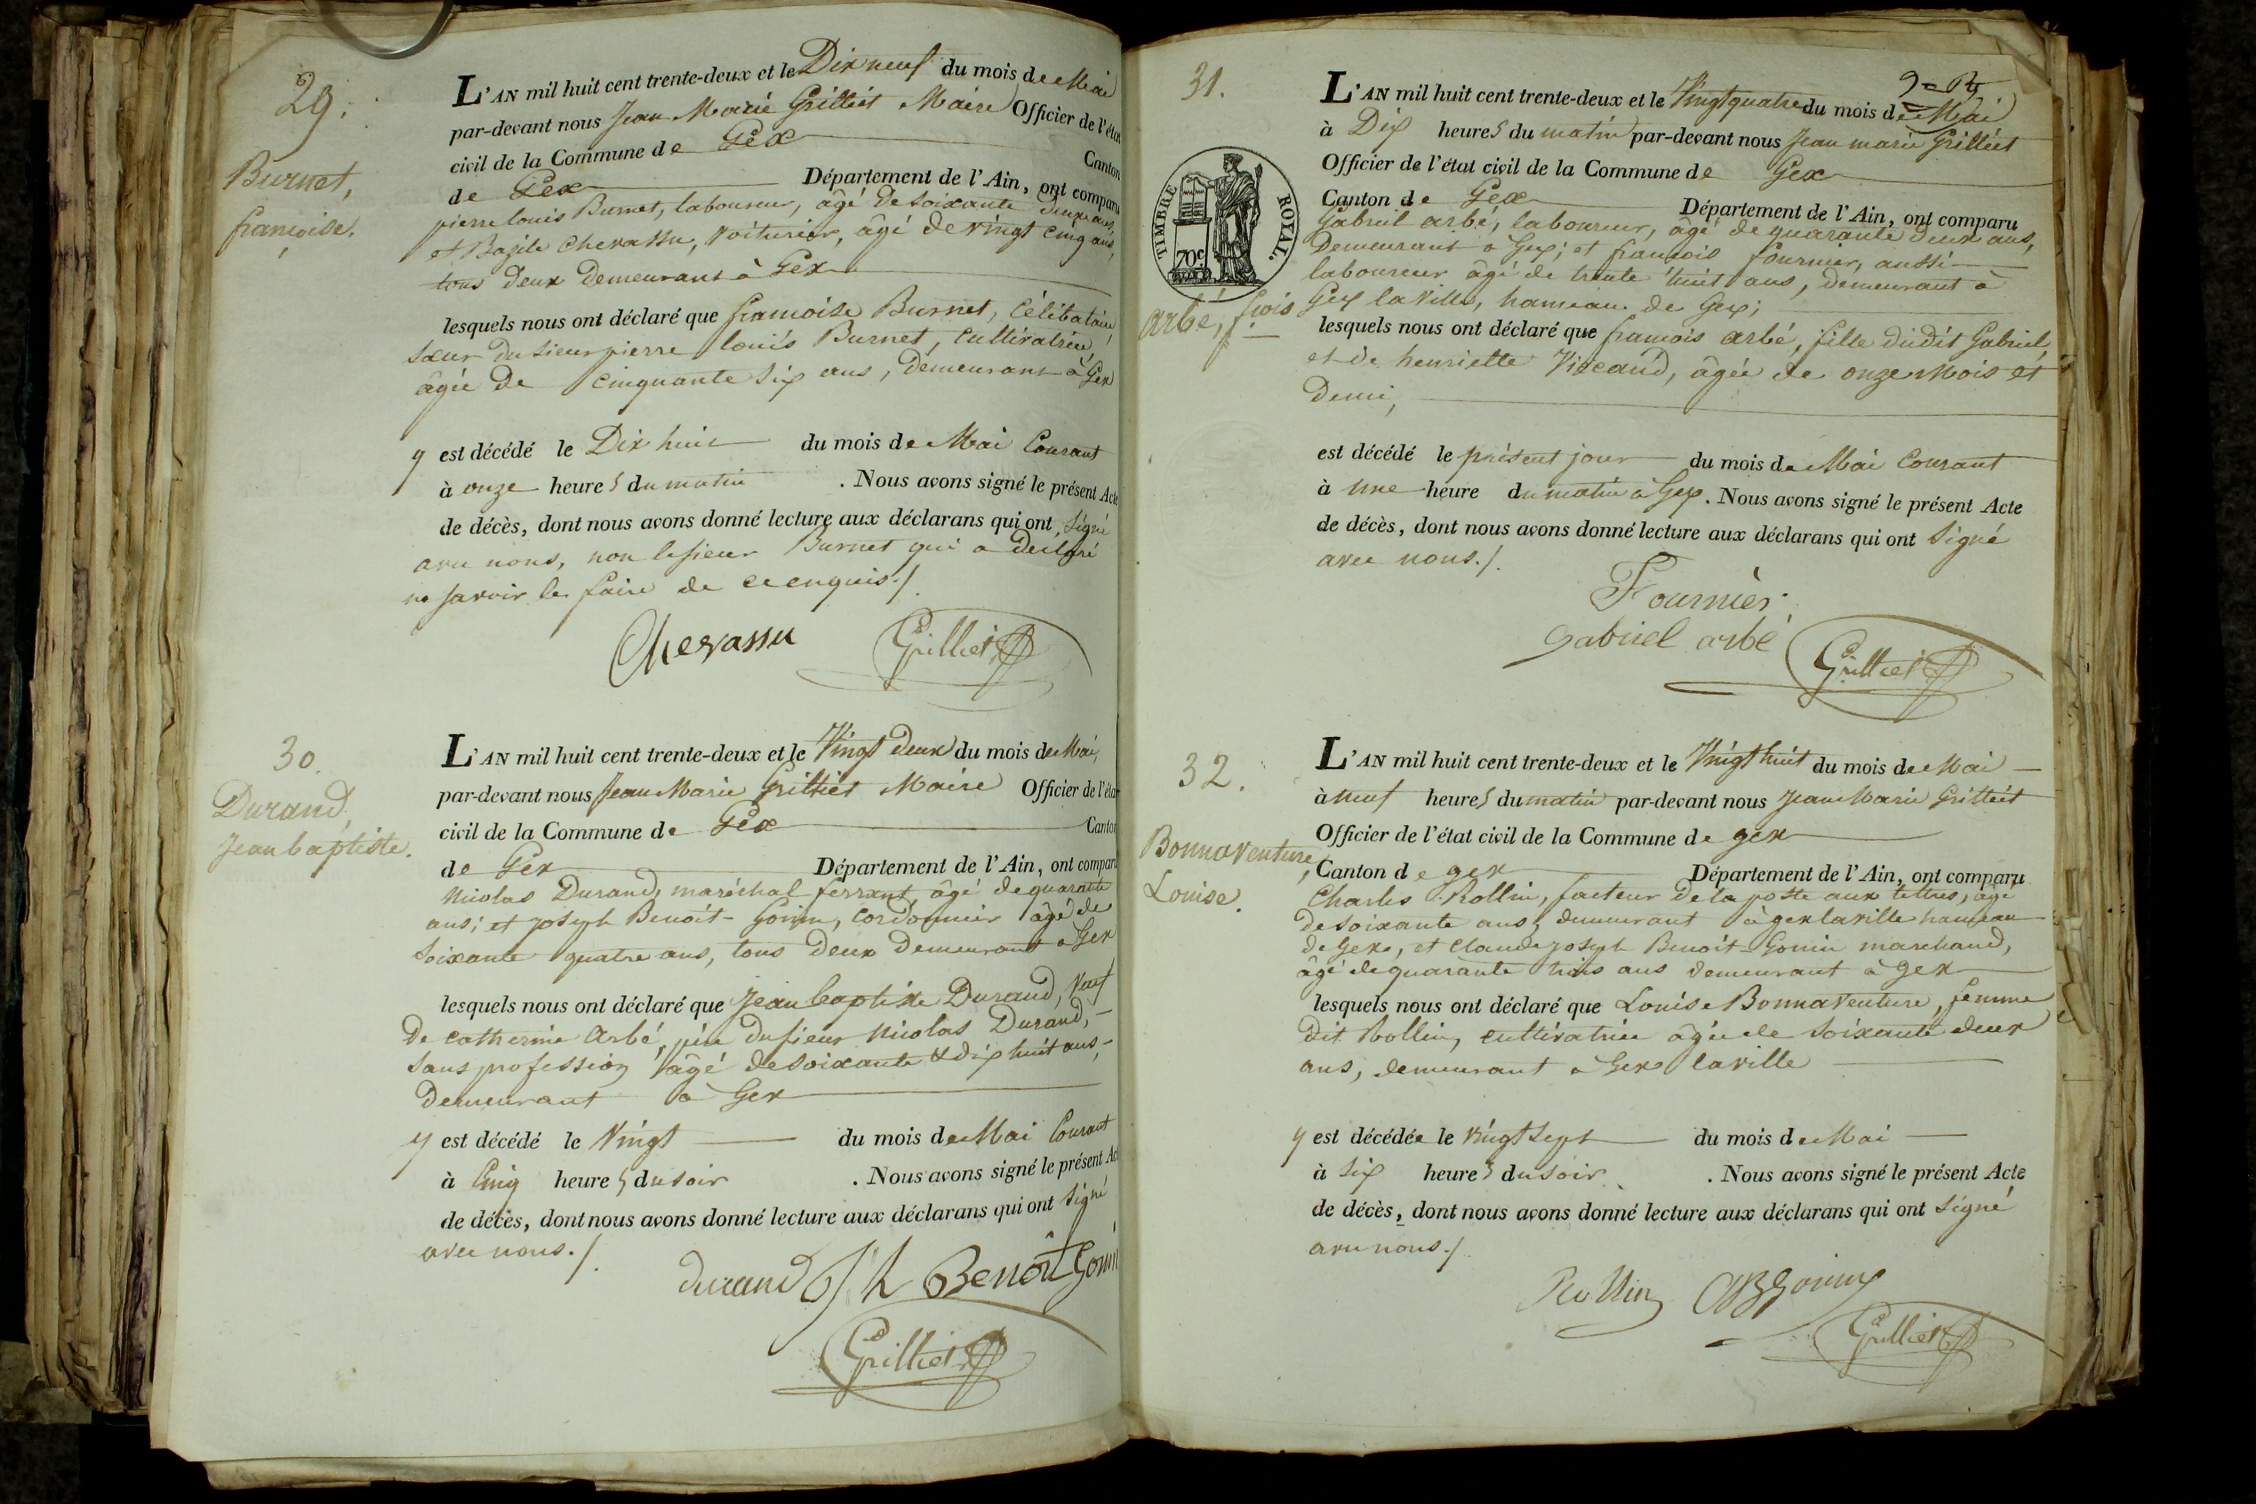 29.
Burnet,
françoise.
L'AN mil huit cent trente-deux et le Dix neuf du mois de Mai
par-devant nous Jean Marie Grilliet Maire Officier de l'état
civil de la Commune de Gex Canton
de Gex Département de l'Ain, ont comparu
pierre louis Burnet, laboureur, âgé de soixante deux ans,
et Bazile Chevassu, voiturier, âgé de vingt cinq ans,
tous deux demeurant à Gex
lesquels nous ont déclaré que françoise Burnet, Célibataire,
sœur du sieur pierre louis Burnet, cultivatrice,
âgée de cinquante six ans, demeurant à Gex
y est décédé le Dix huit du mois de Mai Courant
à onze heures du matin . Nous avons signé le présent Acte
de décès, dont nous avons donné lecture aux déclarans qui ont signé
avec nous, non le sieur Burnet qui a declaré
ne savoir le faire de ce enquis./.
Chevassu Grilliet
30.
Durand,
Jean baptiste.
L'AN mil huit cent trente-deux et le Vingt deux du mois de Mai,
par-devant nous Jean Marie Grilliet Maire Officier de l'état
civil de la Commune de Gex Canton
de Gex Département de l'Ain, ont comparu
Nicolas Durand, maréchal ferrant, âgé de quarante
ans; et joseph Benoit-Gonin, cordonnier âgé de
soixante quatre ans, tous deux demeurant à Gex
lesquels nous ont déclaré que Jean baptiste Durand, veuf
de catherine Arbé, père du sieur Nicolas Durand,
sans profession âgé de soixante & dix huit ans,
demeurant à Gex
y est décédé le Vingt du mois de Mai Courant
à Cinq heures du soir . Nous avons signé le présent Acte
de décès, dont nous avons donné lecture aux déclarans qui ont signé
avec nous./.
durand Benoît Gonin
Grilliet
31.
TIMBRE ROYAL.
70c
arbé, fçois
L'AN mil huit cent trente-deux et le Vingt quatre du mois de Mai
à Dix heures du matin par-devant nous Jean marie Grilliet
Officier de l'état civil de la Commune de Gex
Canton de Gex Département de l'Ain, ont comparu
Gabriel arbé, laboureur, âgé de quarante deux ans,
demeurant à Gex; et francois fournier, aussi
laboureur âgé de trente huit ans, demeurant à
Gex la Ville, hameau de Gex;
lesquels nous ont déclaré que francois arbé, fille dudit Gabriel
et de henriette, âgée de onze mois et
demi,
est décédé le présent jour du mois de Mai Courant
à une heure du matin à Gex. Nous avons signé le présent Acte
de décès, dont nous avons donné lecture aux déclarans qui ont signé
avec nous./.
Fournier
Gabriel arbé Grilliet
32.
Bonnaventure,
Louise.
L'AN mil huit cent trente-deux et le Vingt huit du mois de Mai
à neuf heures du matin par-devant nous Jean Marie Grilliet
Officier de l'état civil de la Commune de gex
Canton de gex Département de l'Ain, ont comparu
Charles Rollin, facteur de la poste aux lettres, âgé
de soixante ans, demeurant à gex la ville hameau
de Gex, et Claude joseph Benoit-Gonin marchand,
âgé de quarante trois ans demeurant à gex
lesquels nous ont déclaré que Louise Bonnaventure, femme
dit Rollin, cultivatrice âgée de soixante deux
ans, demeurant à Gex la ville
y est décédée le vingt sept du mois de Mai
à six heures du soir . Nous avons signé le présent Acte
de décès, dont nous avons donné lecture aux déclarans qui ont signé
avec nous./.
Rollin CJBGonin
Grilliet